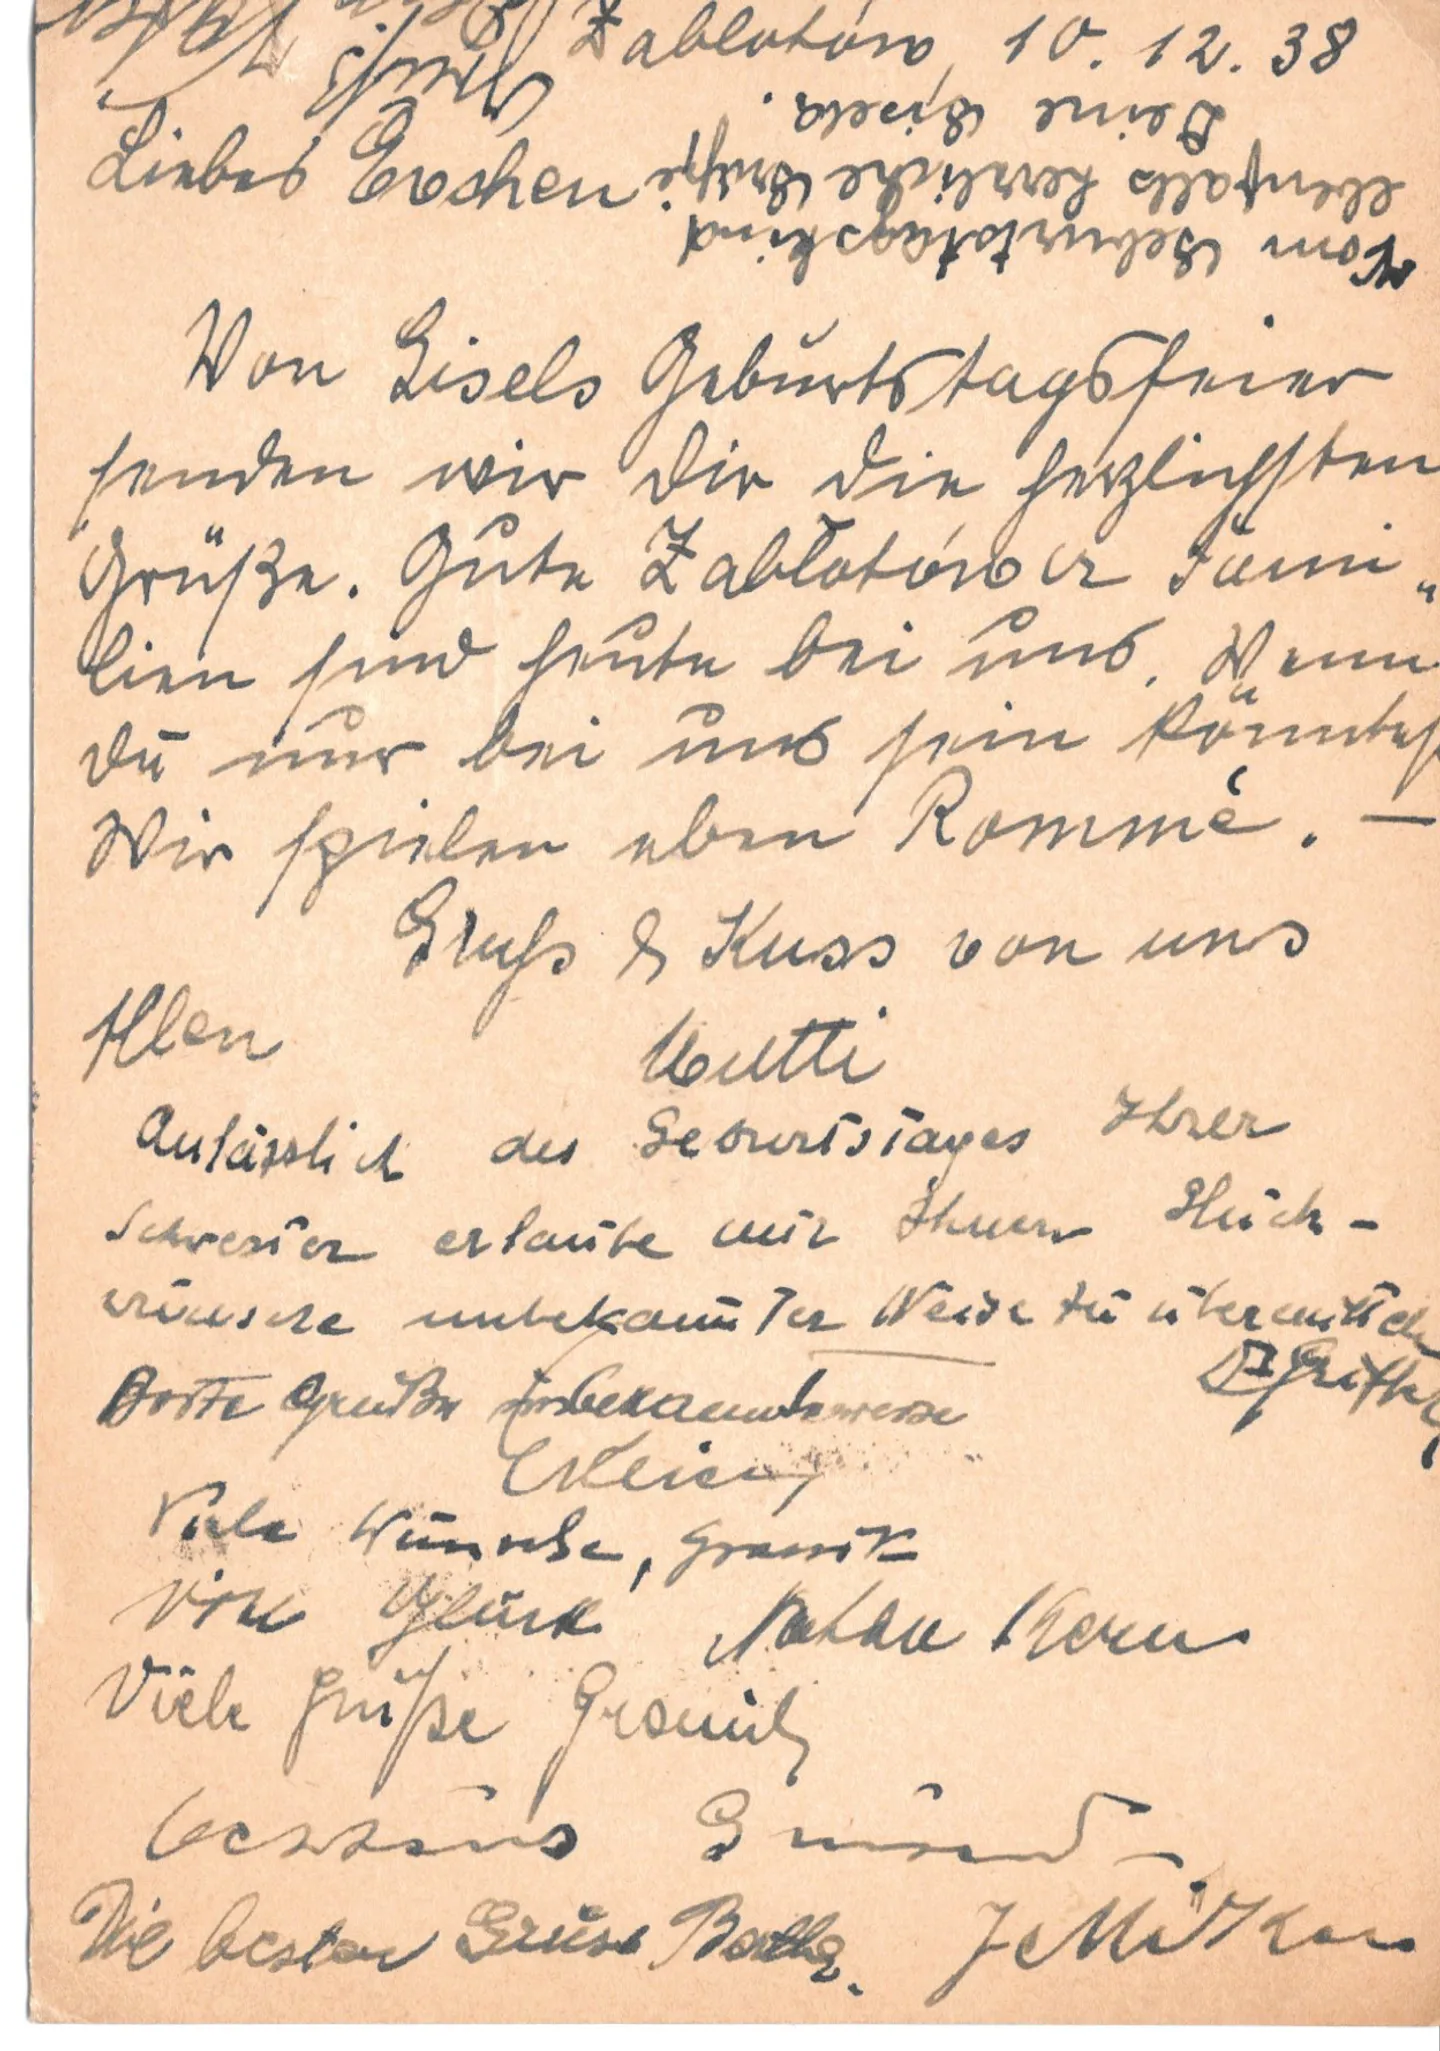 Zabłotów, 10.12.38
Liebes Evchen
Vom Geburtstagskind
ebenfalls herzliche Grüße
Deine Gisela.
Von Gisels Geburtstagsfeier
senden wir Dir die herzlichsten
Grüße. Gute Zabłotówer Fami„
lien sind heute bei uns. Wenn
Du nur bei uns sein könntest
Wir spielen eben Rommé. –
Gruß & Kuss von uns
Allen Mutti
Anlässlich des Geburtstages Ihrer
Schwester erlaube mir Ihnen Glück-
wünsche unbekannter Weise zu übermitteln
Beste Grüße unbekannterweise
Viele Wünsche,
Viel Glück
Viele Grüße
Die besten Grüse Bertha.